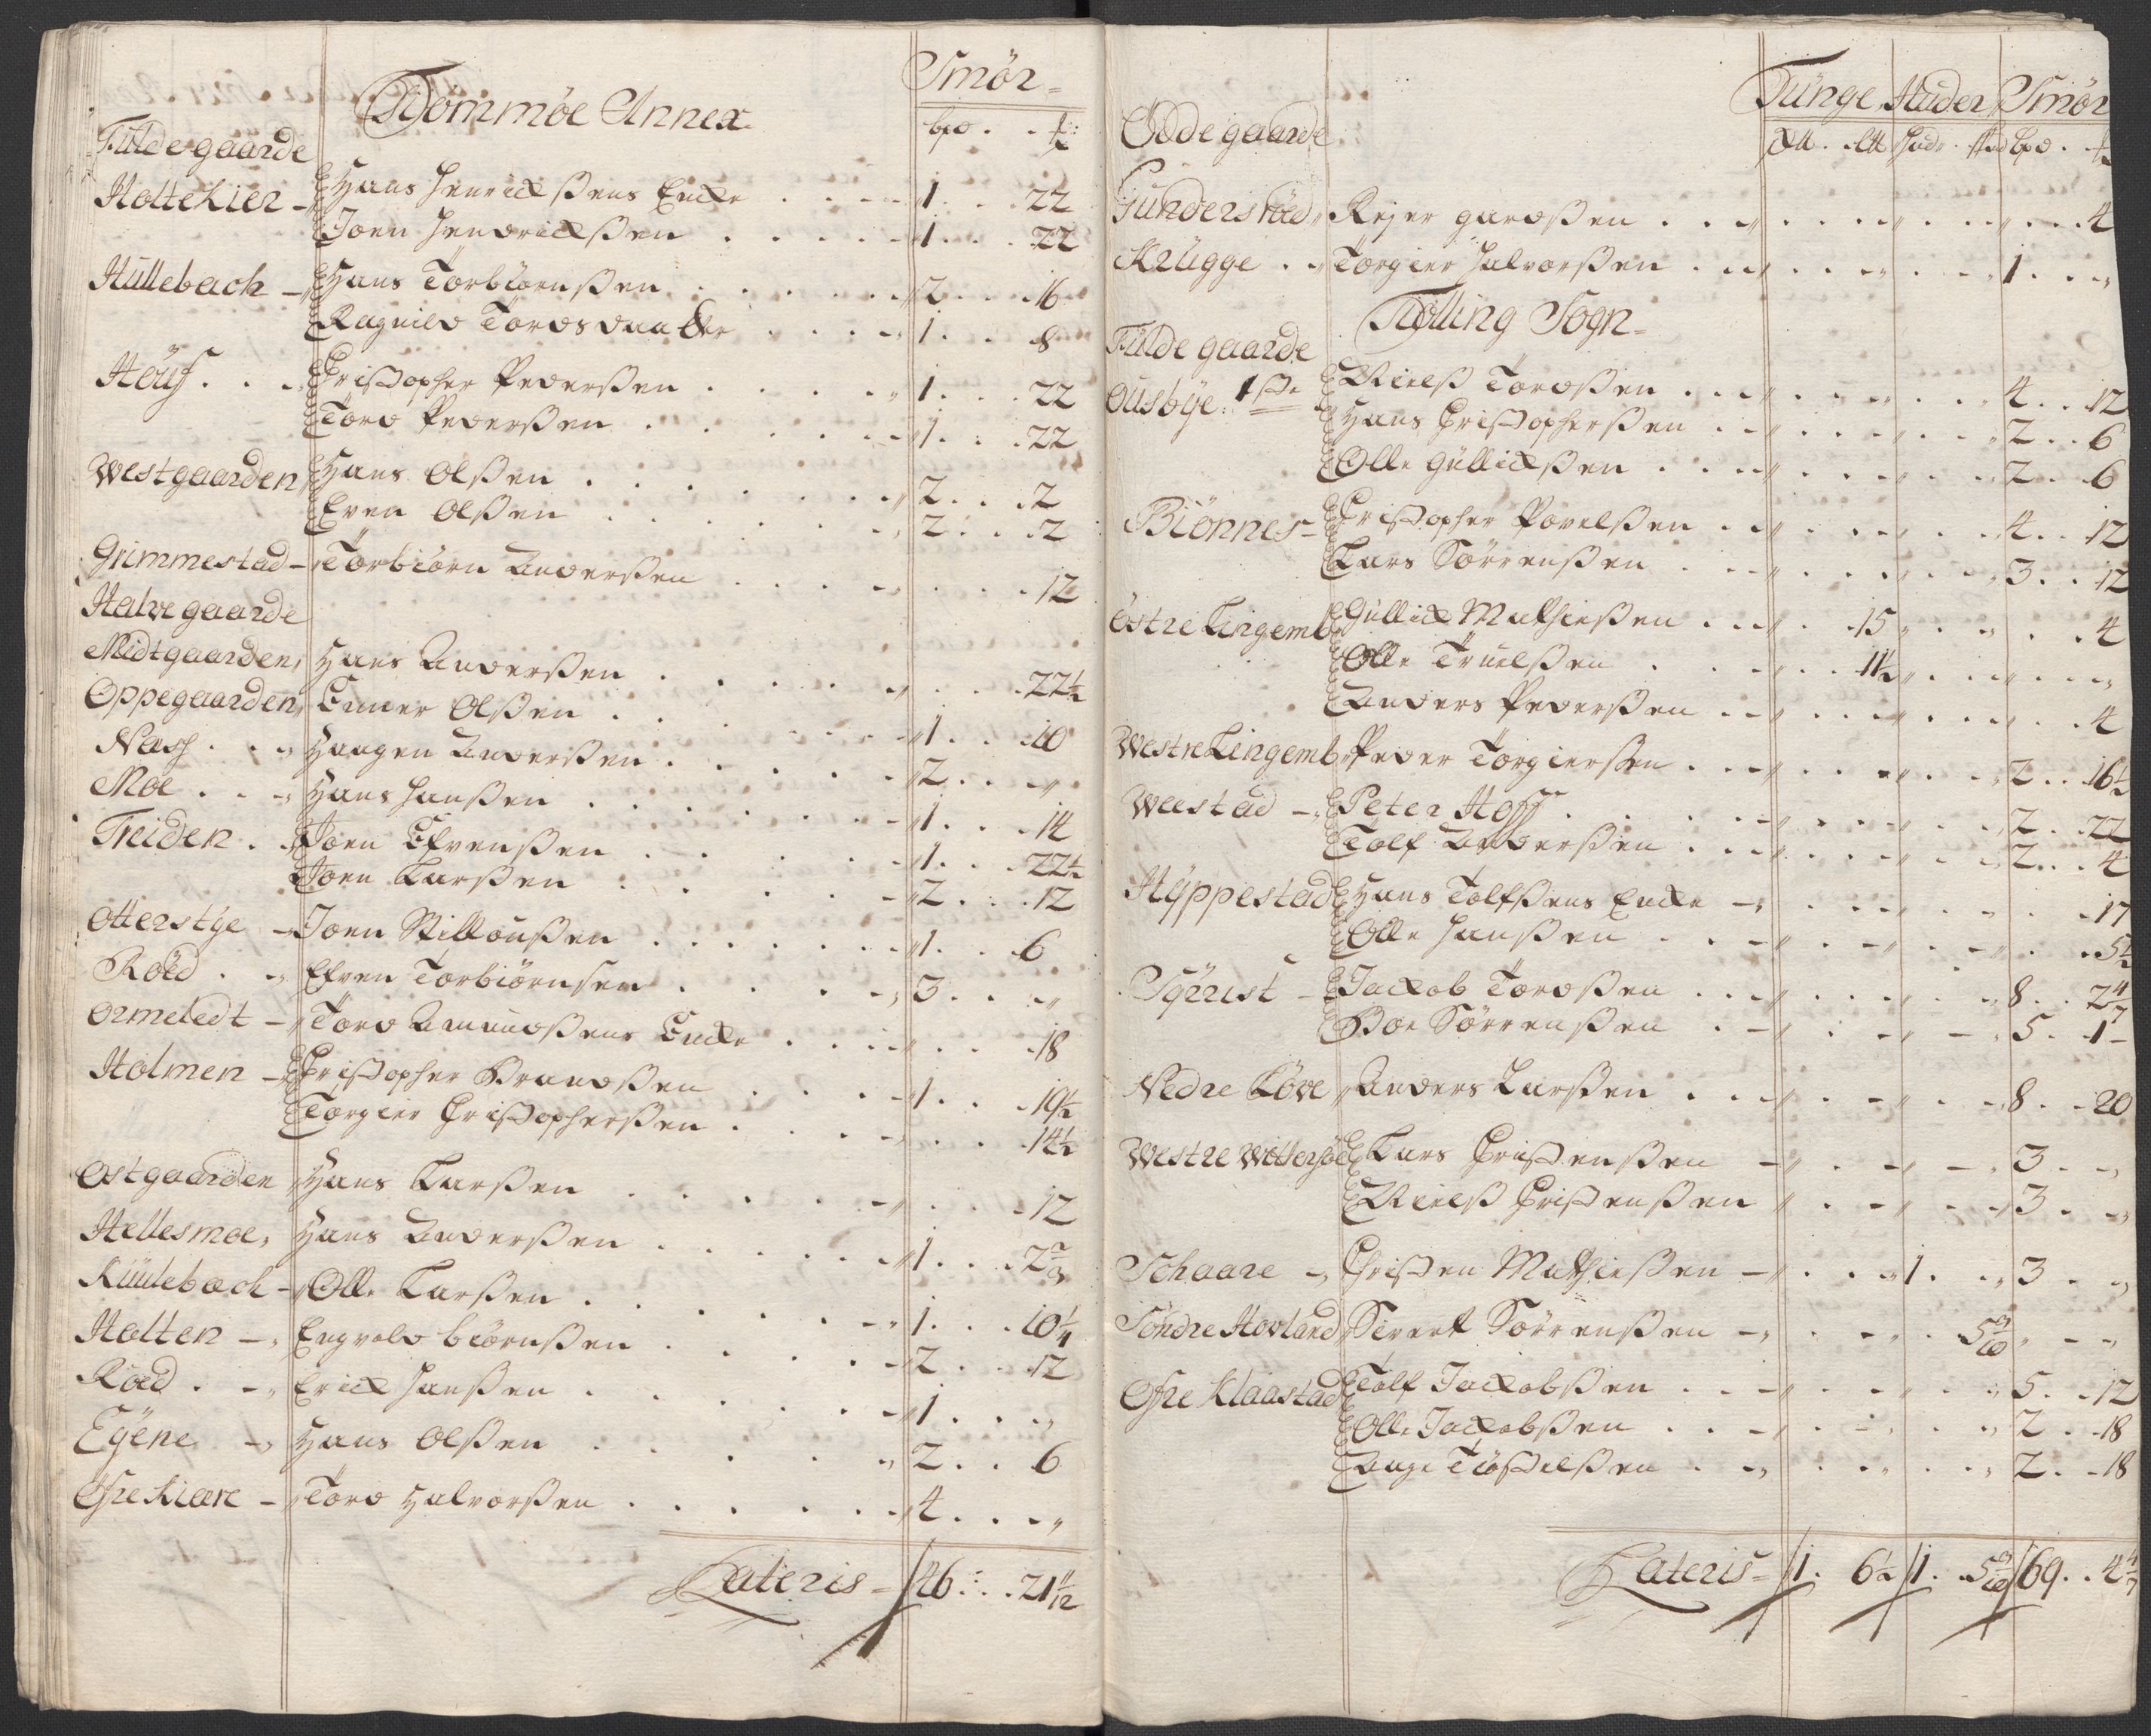 Tiommöe Annex
Smör
bpd. . ℔
Fulde gaarde
Holtekier - Hans Henrickßens Encke . . . . 1 . . 22
Joen Hendrickßen . . . . . 1 . . 22
Hullebach - Hans Torbiornßen . . . . . 2 . . 16
Ragnild Tordsdaatter . . . . 1 . . 8
Höuf . . . Christopher Pederßen . . . . 1 . . 22
Tord Pederßen . . . . . 1 . . 22
Westgaarden Hans Olßen . . . . . 2 . . 2
Even Olßen . . . . . 2 . . 2
Grimmestad - Torbiörn Anderßen . . . . . . 12
Halve gaarde
Midtgaarden, Hans Anderßen . . . . . . 22½
Oppegaarden, Enner Olßen . . . . . 1 . . 10
Nesf . . . Haagen Anderßen . . . . . 2 . . „
Moe . . . Hans Hanßen . . . . . 1 . . 14
Treiden . . Joen Efvenßen . . . . . 1 . . 22½
Joen Larßen . . . . . 2 . . 12
Otterstye - Joen Villoußen . . . . . 1 . . 6
Röed . . Efven Torbiörnsen . . . . 3 . . „
Ormeledt - Tord Amundßens Encke . . . . . . 18
Holmen - Christopher Brandßen . . . . 1 . . 19½
Torgier Christopherßen . . . . . 14½
Ostgaarden Hans Larßen . . . . . . 12
Hellesmoe, Hans Anderßen . . . . . 1 . . 2⅔
Kuulebæch - Olle Larßen . . . . . 1 . . 10¼
Holten - Engvold biörnßen . . . . . 2 . . 12
Röed . - Erick Hanßen . . . . . 1 . . „
Eyene - Hans Olßen . . . . . 2 . . 6
Ofre Kiære - Tord Halvorßen . . . . . 4 . . „
Lateris - 46 . . 21 11/12
Tunge Huder Smör
Ödegaarde
Gundersröed Reyer gardßen . . . . . . 4
Krugge . . Torgier Halvorßen . . . . 1 . . „
Tiölling Sogn
Fulde gaarde
Ousbye: 1ste Nielß Tordßen . . . . 4 . . 12
Hans Christopherßen . . . . 2 . . 6
Olle Gullickßen . . . . 2 . . 6
Biönnes - Christopher Povelßen . . . . 4 . . 12
Lars Sörrenßen . . . . 3 . . 12
östre Lingemb Gullick Mathießen . . . 15 . . . 4
Olle Truelßen . . . 11½ . . . „
Anders Pederßen . . . . . . 4
Westre Lingemb Peder Torgierßen . . . . 2 . . 16½
Weestad - Peter Hoff . . . . 2 . . 22
Tolf Anderßen . . . . 2 . . 4
Hyppestad Hans Tolfßens Encke - . . . . 17
Olle Hanßen . . . . . 5½
Syrrist - Jackob Tordßen . . . . 8 . . 2 4/7
Boe Sörrenßen . . . . 5 . 1 -
Nedre Löve Anders Larßen . . . . 8 . . 20
Westre Wittersöe Lars Christenßen - . . . 3 . „
Nielß Christenßen . . . 3 . „
Schaare - Christen Mathießen - . . 1 . . 3 . „
Söndre Hovland Sivert Sörrenßen - . . . 5 9/10 . „
Ofre Klaastad Tolf Jackobßen . . . . 5 . . 12
Olle Jackobßen . . . . 2 . . 18
Aage Tiöstelßen . . . . 2 . . 18
Lateris - 1 . 6½ 1 . 5 9/10 69 . . 4 4/7